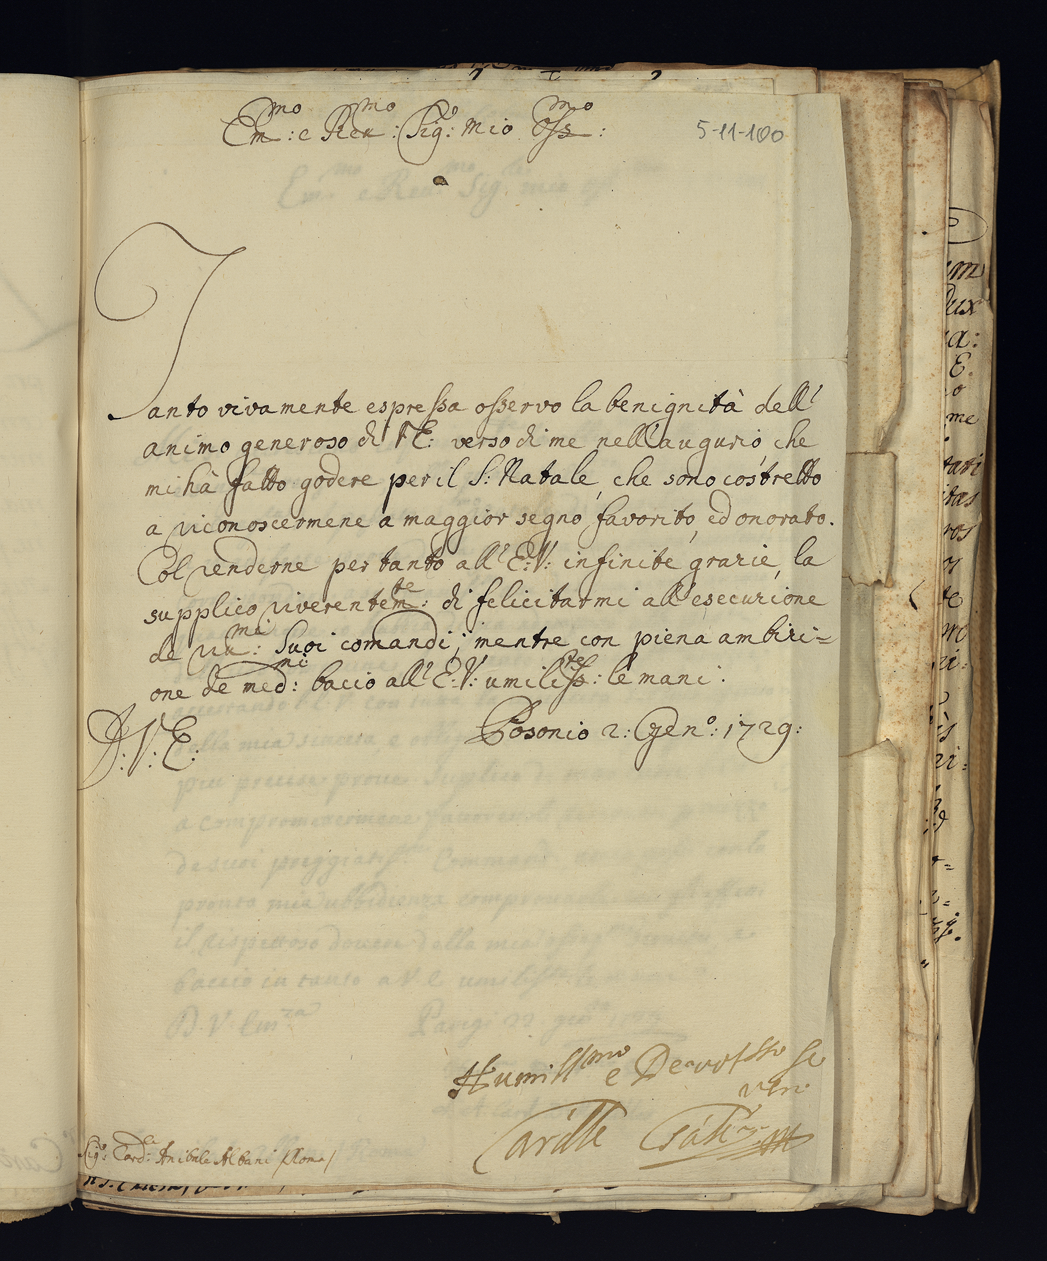 Em:mo e Reu:mo Sig:o mio Oss:mo
5-11-100
Tanto vivamente espressa osservo la benignità dell'
animo generoso di V E: verso di me nell'augurio, che
mi hà fatto godere per il S: Natale, che sono costretto
a riconoscermene a maggior segno favorito, ed onorato.
Col renderne per tanto all' E: V: infinite grazie, la
supplico riverentem:te di felicitarmi all'esecuzione
de Suoi comandi; mentre con piena ambizi=
one de med:mi bacio all' E: V: umiliss:te le mani.
D: V: E:
Posonio 2: Gen:o: 1729:
Humiliss:mo e Devotsso se
ven
Sig:e Card:le Anibale Albani Roma/